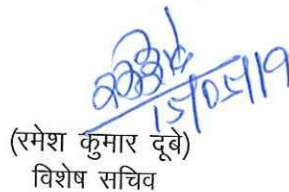 15/05/19
(रमेश कुमार दूबे)
विशेष सचिव